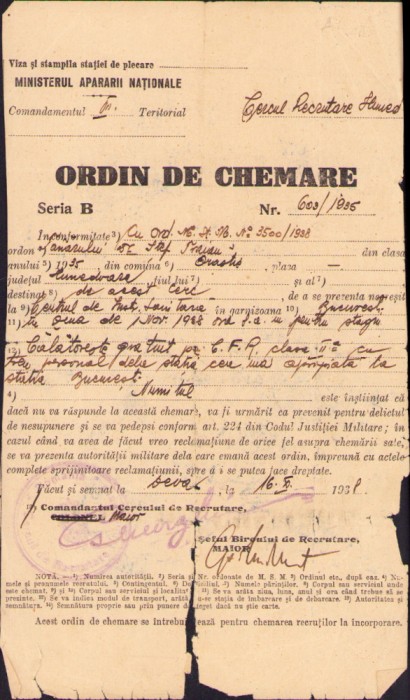 Viza și stampila stației de plecare
MINISTERUL APARARII NAȚIONALE
Comandamentul VI. Teritorial
Cercul Recrutare
ORDIN DE CHEMARE
Seria B Nr. 603/1935
In conformitate ³) Cu Ord. M. St. M. No 3500/1938
ordon din clasa
anului ⁵) 1935 din comuna ⁶) Orastie plasa —
județul Hunedoara fiului ⁷) și al ⁷)
destinat ⁸) de acest cerc - de a se prezenta negreșit
la ⁹) Centrul de Inst. Sanitara în garnizoana ¹⁰) Bucuresti
¹¹) în ziua de 1 Nov. 1938 ora pentru stagiu
¹²) Călătorește gratuit pe C.F.R. clasa II-a cu
tren personal dela stația cea mai apropiată la
stația Bucuresti
⁴) Numitul este înștiințat că
dacă nu va răspunde la această chemare, va fi urmărit ca prevenit pentru delictul
de nesupunere și se va pedepsi conform art. 224 din Codul Justiției Militare; în
cazul când va avea de făcut vreo reclamațiune de orice fel asupra chemării sale,
se va prezenta autorității militare dela care emană acest ordin, împreună cu actele
complete sprijinitoare reclamațiunii, spre a i se putea face dreptate.
Făcut și semnat la Deva, la 16. X. 1938.
Comandantul Cercului de Recrutare,
Maior
Șeful Biroului de Recrutare,
MAIOR
NOTĂ. — ¹) Numirea autorității. ²) Seria și Nr. ordonate de M. S. M. ³) Ordinul etc., după caz. ⁴) Numele și pronumele recrutului. ⁵) Contingentul. ⁷) Numele părinților. ⁸) Corpul sau serviciul unde
este chemat. ⁹) și ¹⁰) Corpul sau serviciul și localitatea ¹¹) Se va arăta ziua, luna, anul și ora când trebue să se
prezinte. ¹²) Se va indica modul de transport, stația de îmbarcare și de debarcare. Autoritatea și
semnătura. Semnătura proprie sau prin punere de deget dacă nu știe carte.
Acest ordin de chemare se întrebuințează pentru chemarea recruților la incorporare.